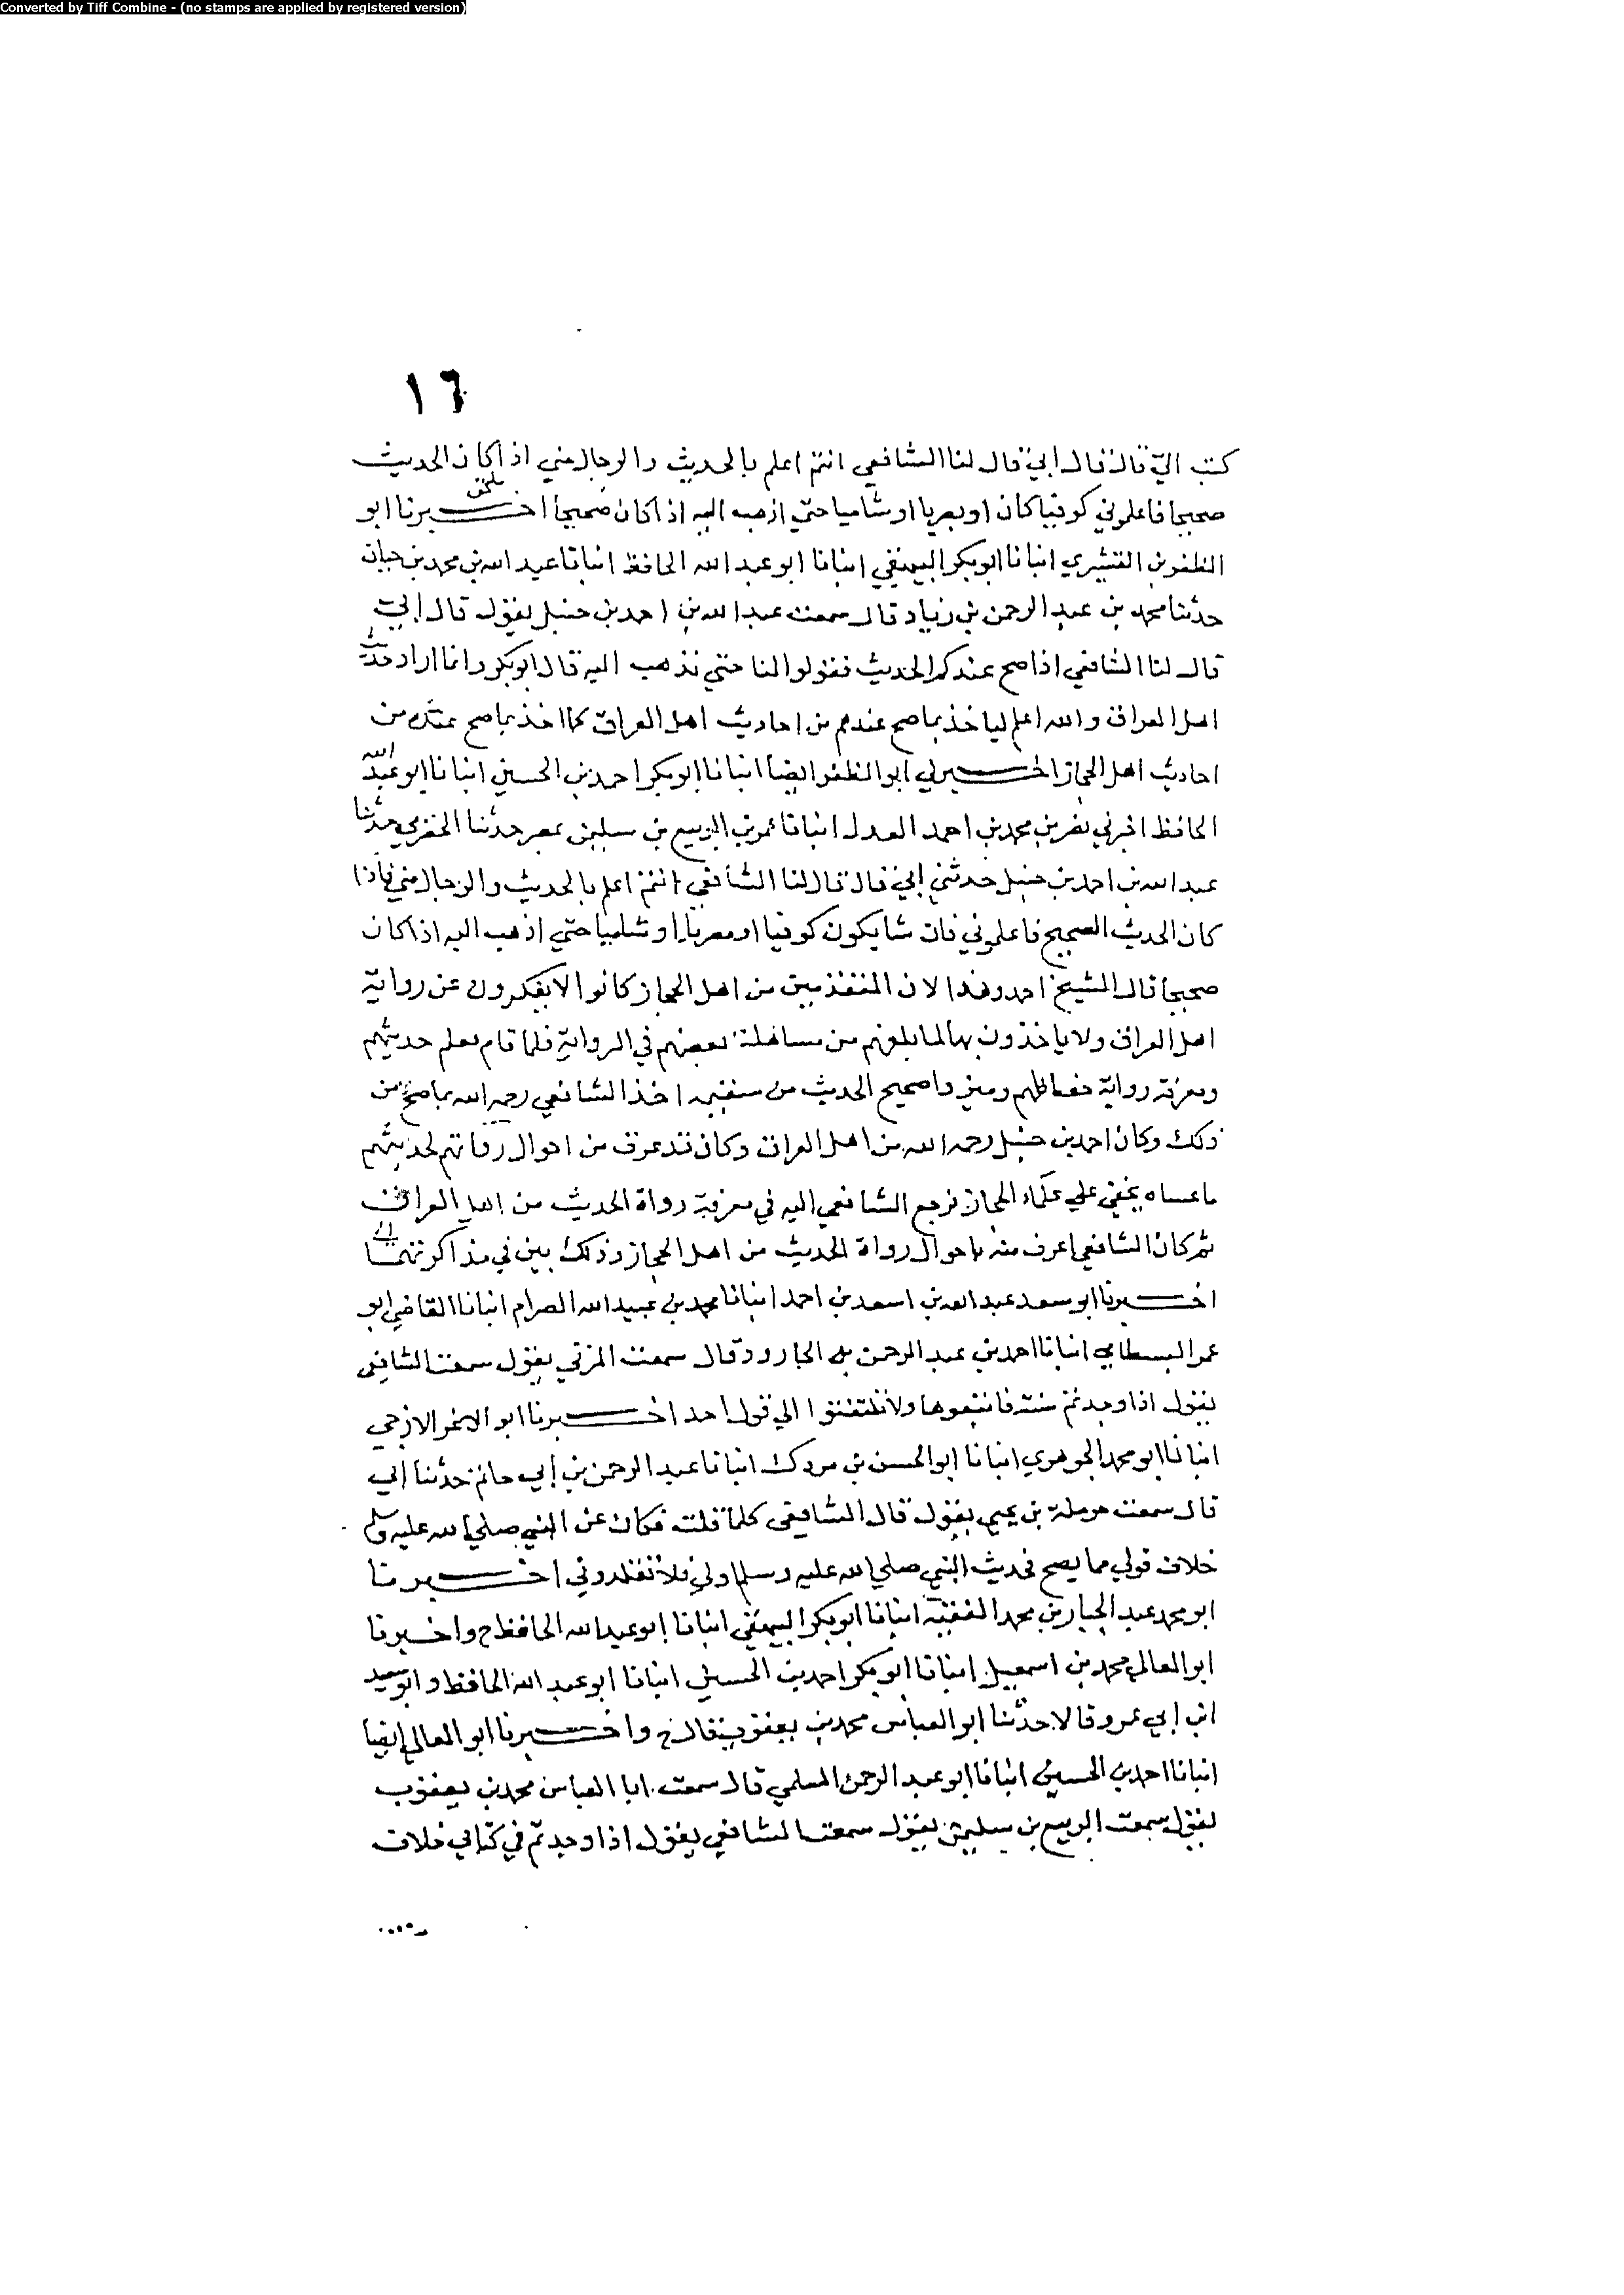 Converted by Tiff Combine - (no stamps are applied by registered version)
١٦
كتب الي قال قال ابي قال لنا الشافعي انتم اعلم بالحديث والرجال مني اذا كان الحديث
صحيحا فاعلموني كوفيا كان او بصريا او شاميا حتي اذهب اليه اذا كان صحيحا اخبرنا ابو
المظفر بن القشيري انبانا ابو بكر البيهقي انبانا ابو عبد الله الحافظ انبانا عبد الله بن محمد بن حيان
حدثنا محمد بن عبد الرحمن بن زياد قال سمعت عبد الله بن احمد بن حنبل يقول قال ابي
قال لنا الشافعي اذا صح عندكم الحديث فقولوا لنا حتي نذهب اليه قال ابو بكر وانما اراد حديث
اهل العراق والله اعلم لياخذ بما صح عندهم من احاديث اهل العراق كما اخذ بما صح عنده من
احاديث اهل الحجاز اخبرني ابو المظفر ايضا انبانا ابو بكر احمد بن الحسين انبانا ابو عبد الله
الحافظ اخبرني نصر بن محمد بن احمد العدل انبانا عمر بن الربيع بن سليمن بمصر حدثنا الحضرمي حدثنا
عبد الله بن احمد بن حنبل حدثني ابي قال قال لنا الشافعي انتم اعلم بالحديث والرجال مني فاذا
كان الحديث الصحيح فاعلموني فان شا يكون كوفيا او بصريا او شاميا حتي اذهب اليه اذا كان
صحيحا قال الشيخ احمد وهذا لان المتقدمين من اهل الحجاز كانوا لا يفكرون عن رواية
اهل العراق ولا ياخذون بها لما بلغهم من مساهلة بعضهم في الرواية فلما قام بعلم حديثهم
ومعرفة رواية حفاظهم وميزوا صحيح الحديث من سقيمه اخذ الشافعي رحمه الله بما صح من
ذلك وكان احمد بن حنبل رحمه الله من اهل العراق وكان قد عرف من احوال رواتهم لحديثهم
ما عساه يخفي علي علماء الحجاز فرجع الشافعي اليه في معرفة رواة الحديث من اهل العراق
ثم كان الشافعي اعرف منه باحوال رواة الحديث من اهل الحجاز وذلك بين في مذاكرتهما
اخبرنا ابو سعد عبد الله بن اسعد بن احمد انبانا محمد بن عبيد الله الصرام انبانا القاضي ابو
عمر البسطامي انبانا احمد بن عبد الرحمن بن الجارود قال سمعت المزني يقول سمعت الشافعي
يقول اذا وجدتم سنة فاتبعوها ولا تلتفتوا الي قول احد اخبرنا ابو الاعز الازجي
انبانا ابو محمد الجوهري انبانا ابو الحسن بن مردك انبانا عبد الرحمن بن ابي حاتم حدثنا ابي
قال سمعت حرملة بن يحيي يقول قال الشافعي كلما قلت فكان عن النبي صلي الله عليه وسلم
خلاف قولي مما يصح فحديث النبي صلي الله عليه وسلم اولي فلا تقلدوني اخبرنا
ابو محمد عبد الجبار بن محمد الفقيه انبانا ابو بكر البيهقي انبانا ابو عبد الله الحافظ ح واخبرنا
ابو المعالي محمد بن اسمعيل انبانا ابو بكر احمد بن الحسين انبانا ابو عبد الله الحافظ وابو سعيد
ابن ابي عمرو قالا حدثنا ابو العباس محمد بن يعقوب قال ح واخبرنا ابو المعالي ايضا
انبانا احمد بن الحسين انبانا ابو عبد الرحمن السلمي قال سمعت ابا العباس محمد بن يعقوب
يقول سمعت الربيع بن سليمن يقول سمعت الشافعي يقول اذا وجدتم في كتابي خلاف